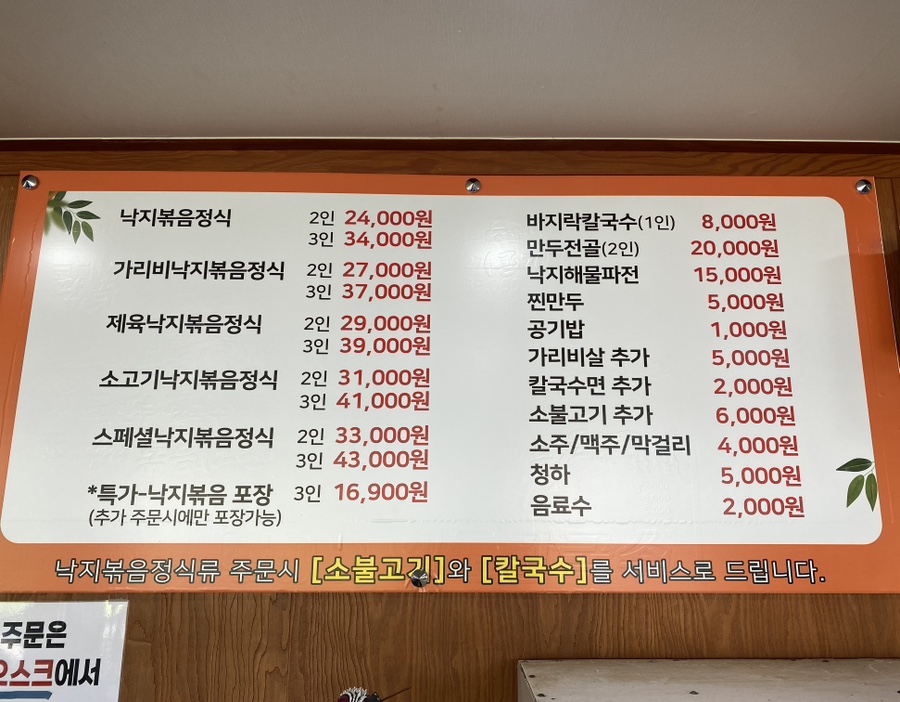 낙지볶음정식 2인 24,000원
3인 34,000원
가리비낙지볶음정식 2인 27,000원
3인 37,000원
제육낙지볶음정식 2인 29,000원
3인 39,000원
소고기낙지볶음정식 2인 31,000원
3인 41,000원
스페셜낙지볶음정식 2인 33,000원
3인 43,000원
*특가-낙지볶음 포장 3인 16,900원
(추가 주문시에만 포장가능)
바지락칼국수(1인) 8,000원
만두전골(2인) 20,000원
낙지해물파전 15,000원
찐만두 5,000원
공기밥 1,000원
가리비살 추가 5,000원
칼국수면 추가 2,000원
소불고기 추가 6,000원
소주/맥주/막걸리 4,000원
청하 5,000원
음료수 2,000원
낙지볶음정식류 주문시 [소불고기]와 [칼국수]를 서비스로 드립니다.
주문은
오스크에서